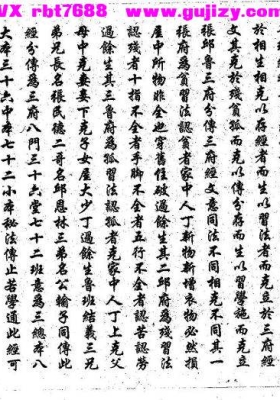 VX rbt7688 www.gujizy.com
於相生相克者而生者而克立於三府經
文其克於殘貧孤而克以傳分存而生以習學施而克立
張邱魯三府分傳三府經文意同法不同相克不同其一
張府為貧習法認貧者家中人丁新物新增衣物必然損
屋中所物非全也穿舊住破過餘生其二邱府為殘習法
認殘者十指不全者手腳不全者五行不全者認苦認勞
過餘生其三魯府為孤習法認孤者克家中人丁上克父
母中克妻妾下克子女屋大少丁過餘生魯班結義三兄
弟兄長名張民德二哥名邱恩林三弟名公輸子同傳此
經分傳為三府八門三十六堂七十二班意為三總本八
大本三十六中本七十二小本秘法傳止若學通此經可